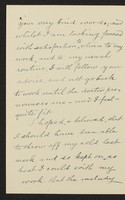 your very kind words, and
whilst I am looking forward
with satisfaction to return to my
work, and to my usual
routine, I will follow your
advice, and not go back
to work until the doctor pro-
nounces me - and I feel -
quite fit.
I hoped, & believed, that
I should have been able
to throw off my cold last
week and so kept on, as
best I could with my
work. But the malady